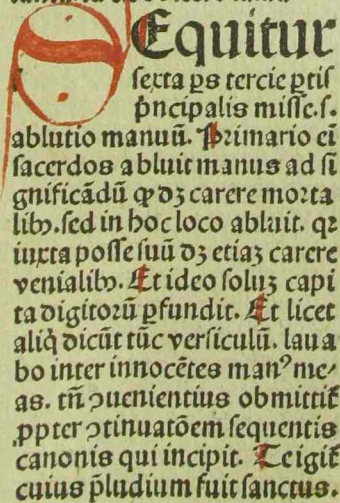 SEquitur
sexta ꝑs tercie ꝑtis
p̄ncipalis misse.s.
ablutio manuū. Primario eī
sacerdos abluit manus ad si
gnificādū ꝙ dꝫ carere morta
libꝰ. sed in hoc loco abluit. qꝛ
iuxta posse suū dꝫ etiaꝫ carere
venialibꝰ. Et ideo soluꝫ capi
ta digitorū ꝑfundit. Et licet
aliq̇ dicūt tūc versiculū. laua
bo inter innocētes manꝰ me⸗
as. tn̄ ꝯuenientius obmittit᷑
ꝓpter ꝯtinuatōem sequentis
canonis qui incipit. Te igit᷑
cuius p̄ludium fuit sanctus.